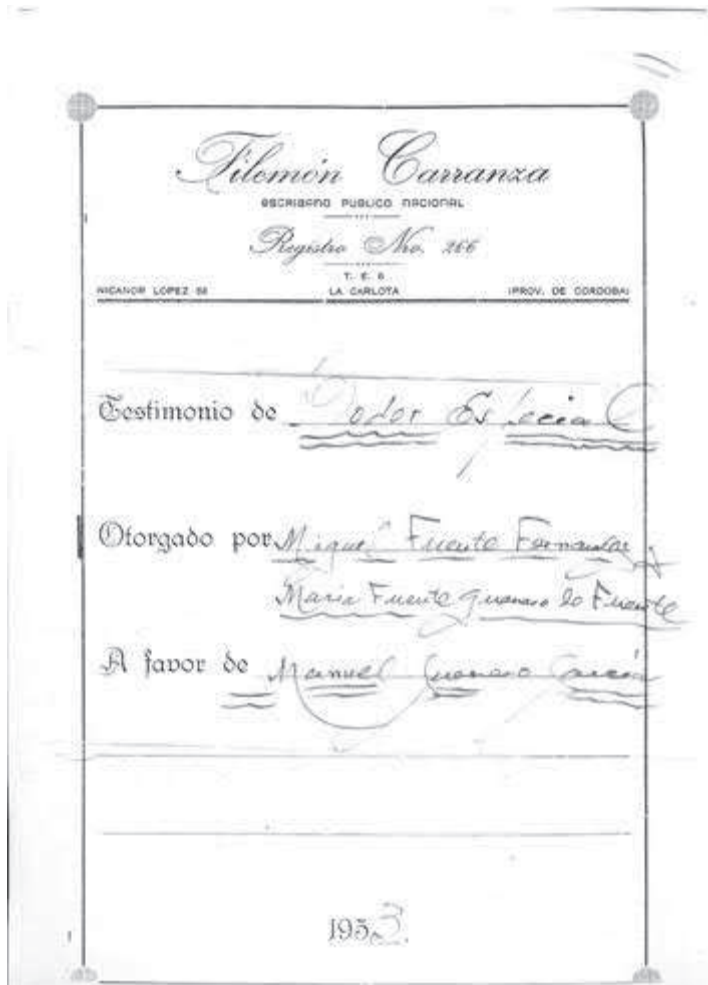 Filemón Carranza
ESCRIBANO PUBLICO NACIONAL
Registro Nro. 266
T. E. 6
NICANOR LOPEZ 52 LA CARLOTA (PROV. DE CORDOBA)
Testimonio de Poder Especial
Otorgado por Miguel Fuente Fernandez y
Maria Fuente de Fuente
A favor de Manuel García
1953.